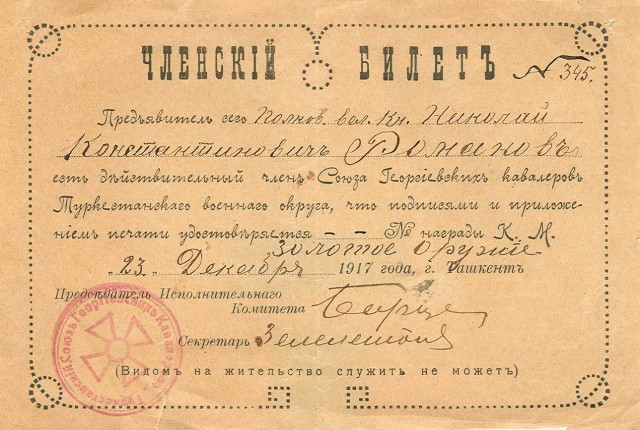 ЧЛЕНСКІЙ БИЛЕТЪ № 345.
Предъявитель сего Полков. вел. Кн. Николай
Константиновичъ Романовъ
есть дѣйствительный членъ Союза Георгіевскихъ кавалеровъ
Туркестанскаго военнаго округа, что подписями и приложе-
ніемъ печати удостовѣряется – – № награды К. М.
золотое оружіе
„ 23 „ Декабря 1917 года, г. Ташкентъ
Предсѣдатель Исполнительнаго
Комитета
Секретарь
(Видомъ на жительство служить не можетъ)
Туркестанскій Союзъ Георгіевскихъ Кавалеровъ